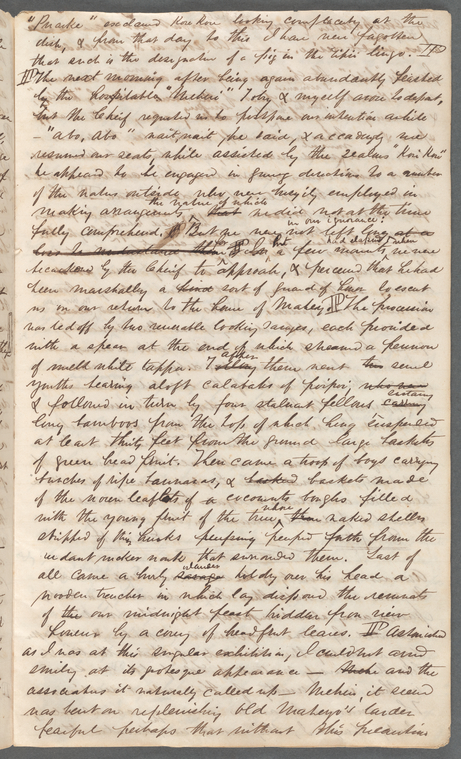 "Puarke" exclaimed Kori Kori looking complacently at the
dish, & from that day to this I have never forgotten
that such is the designation of a pig in the Typee lingo.
The next morning after being again abundantly feasted
by the hospitable "Mehevi" Toby & myself arose to depart,
but the Chief requested us to postpone our intention awhile
— "abo, abo" wait, wait, he said, & accordingly we
resumed our seats, while assisted by the zealous "Kori Kori"
he appeared to be engaged in giving directions to a number
of the natives outside, who were busily employed in
making arrangements the nature of which we did not at the time
fully comprehend. But we were not left in our ignorance;
for but a few moments had elapsed, when we were
beckoned by the Chief to approach, & perceived that he had
been marshalling a kind sort of guard of honor to escort
us on our return to the house of Maheyo. The procession
was led off by two venerable looking savages, each provided
with a spear at the end of which streamed a pennon
of milk white tappa. After them went several
youths bearing aloft calabashes of poipoi;
& followed in turn by four stalwart fellows sustaining
long bamboos from the top of which hung suspended
at least thirty feet from the ground large baskets
of green bread fruit. Then came a troop of boys carrying
bunches of ripe bananas, & baskets made
of the woven leaflets of a cocoanut boughs filled
with the young fruit of the tree, whose naked shells
stripped of their husks peeped forth from the
verdant wicker work that surrounded them. Last of
all came a burly islander holding over his head a
wooden trencher in which lay disposed the remnants
of the our midnight feast hidden from view
however by a covering of bread fruit leaves. Astonished
as I was at this singular exhibition, I could not avoid
smiling at its grotesque appearance — and the
associations it naturally called up — Mehevi, it seemed
was bent on replenishing old Maheyo's larder
fearful perhaps that without this precaution